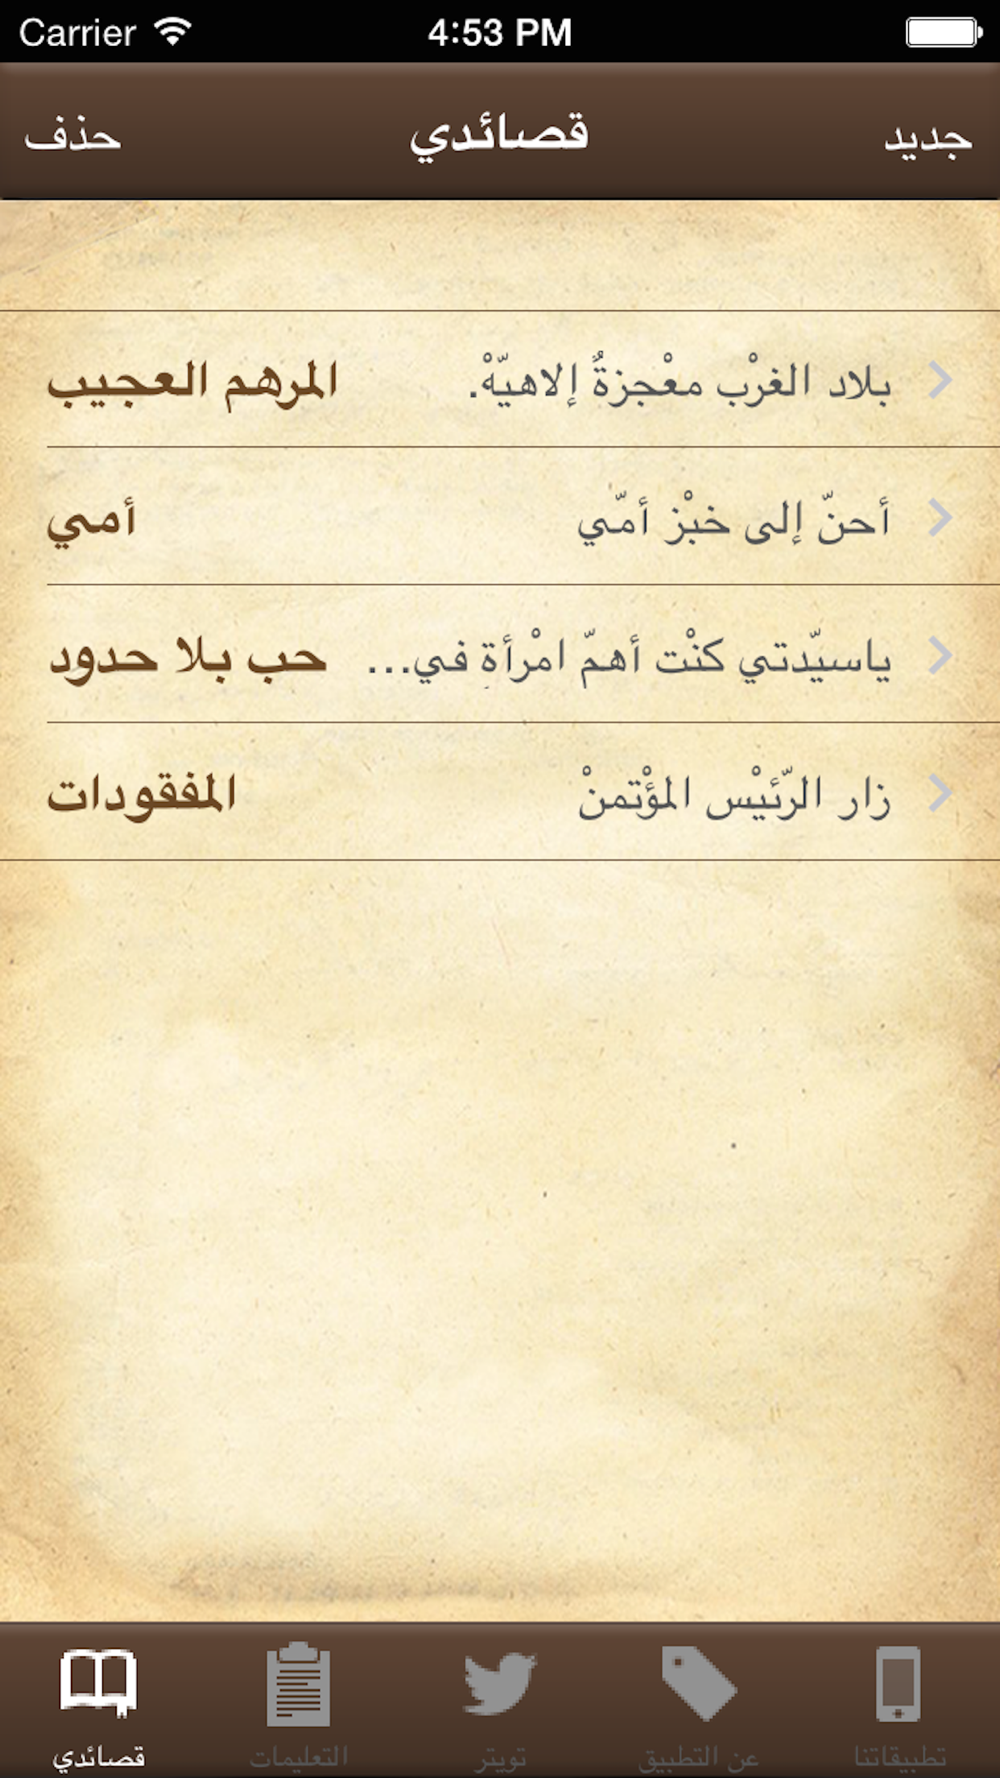 Carrier 4:53 PM
جديد قصائدي حذف
بلاد الغرْب معْجزةٌ إلاهيّهْ. المرهم العجيب
أحنّ إلى خبْز أمّي أمي
ياسيّدتي كنْت أهمّ امْرأةِ في... حب بلا حدود
زار الرّئيْس المؤْتمنْ المفقودات
تطبيقاتنا عن التطبيق تويتر التعليمات قصائدي